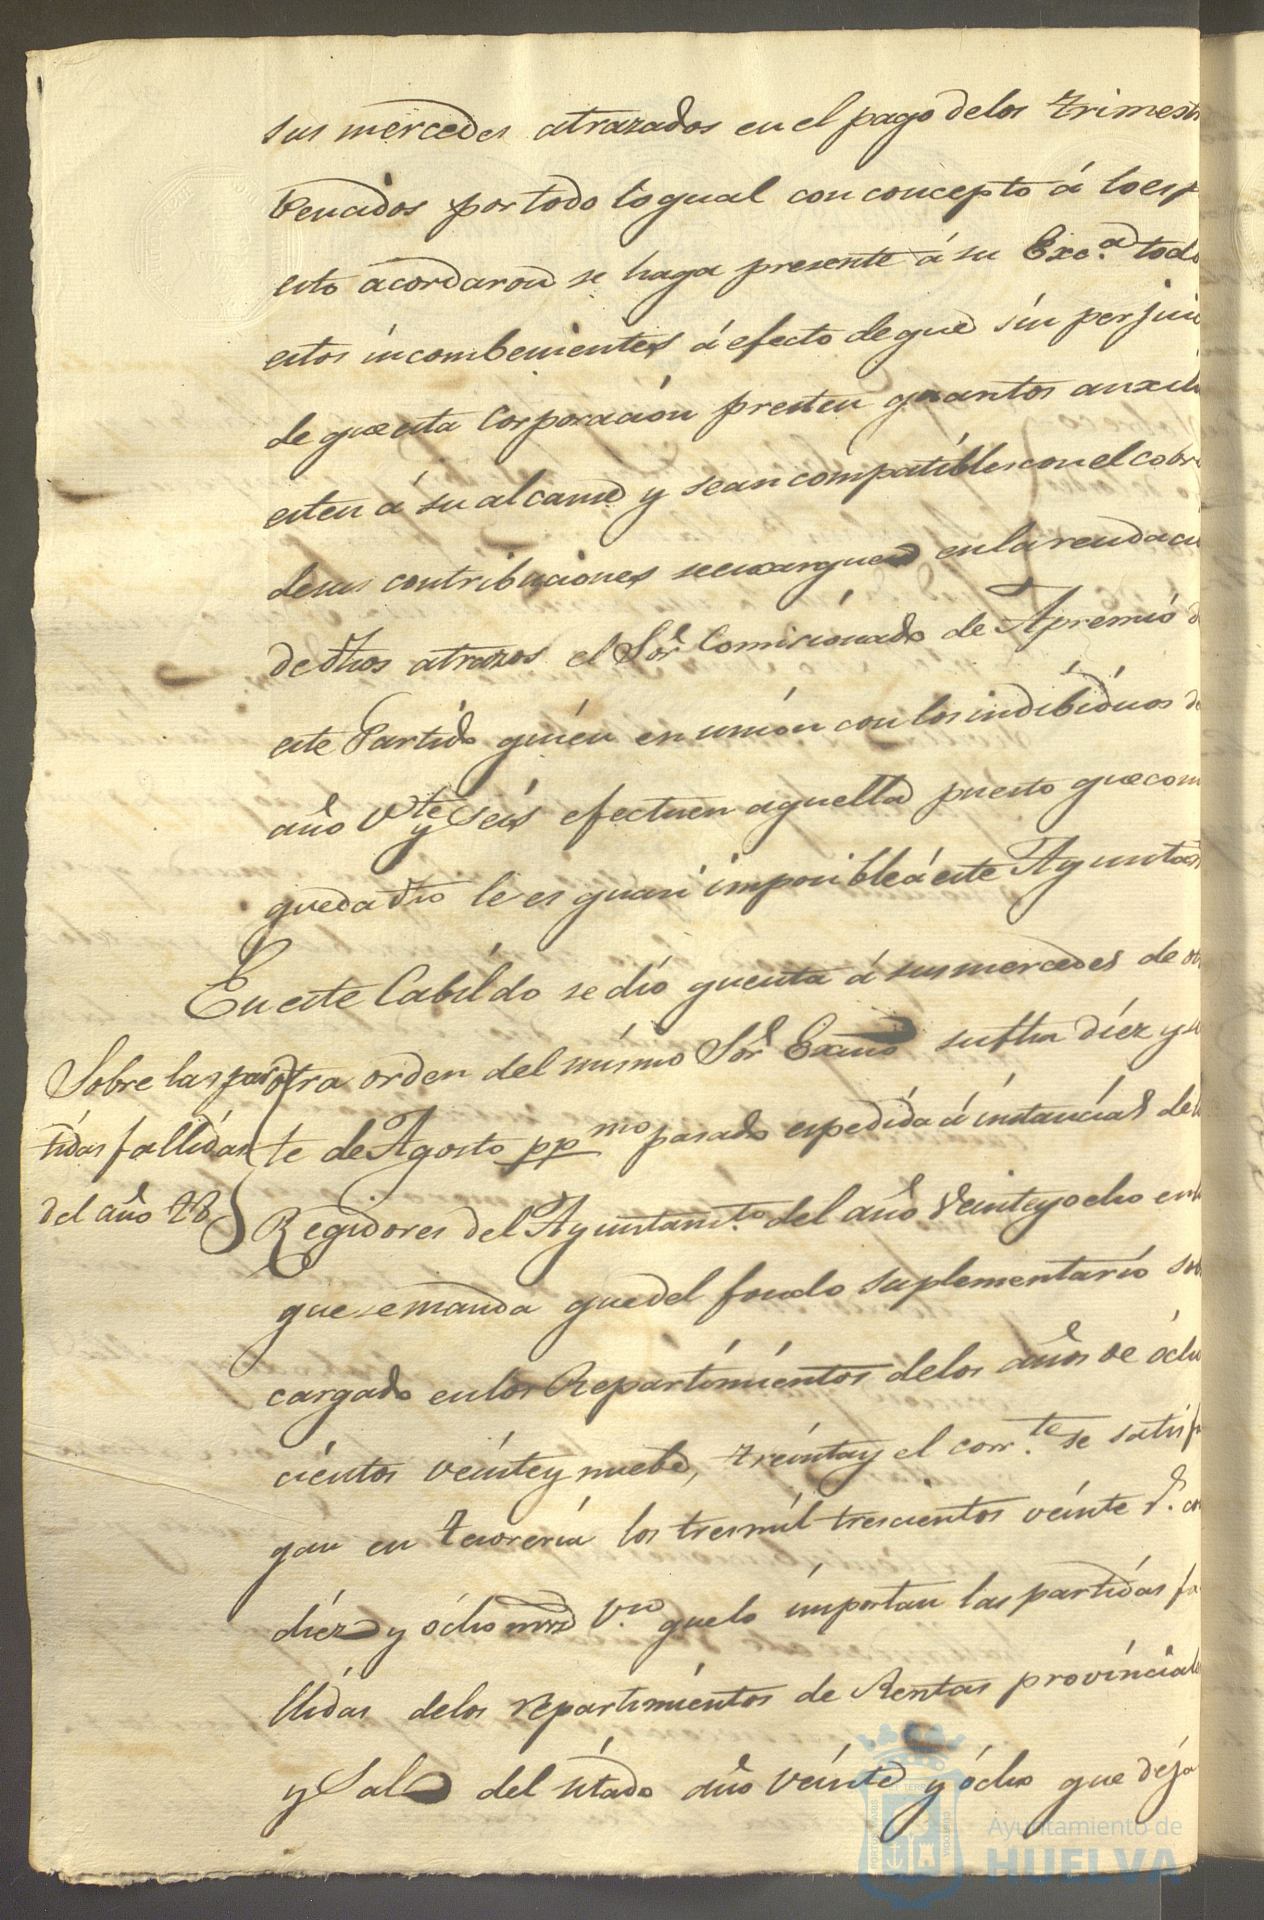 sus mercedes atrazados en el pago delos trimest
Vencidos por todo lo qual con concepto á lo esp
esto acordaron se haga presente á su Exc.a todo
estos incombenientes á efecto de que sin perjuic
de que esta Corporacion presten quantos auxili
esten á su alcance y sean compatibles con el cobr
desus contribuciones se encarguen en la rendaci
de dhos atrazos el Sor Comisionado de Apremio d
este Partido quien en union con los indibiduos de
año Vte y Seis efectuen aquella puesto que com
queda dho le es quasi imposible á este Ayuntam
En este Cabildo se dió quenta á sus mercedes de
Sobre las par
tidas fallidas
del año 28
otra orden del mismo Sor Exmo su fha diez y si
te de Agosto pp.mo pasado espedida á instancias delos
Regidores del Ayuntam.to del año Veinte y ocho en la
que se manda que del fondo suplementario sob
cargado en los Repartimientos delos años de ócho
cientos veinte y nuebe, treinta y el corr.te se satisf
gan en tesoreria los tres mil trescientos veinte r.s con
diez y ócho mrs V.on que lo importan las partidas fa
llidas delos repartimientos de Rentas provinciale
y Sal del citado año veinte y ócho que deja
Ayuntamiento de
HUELVA